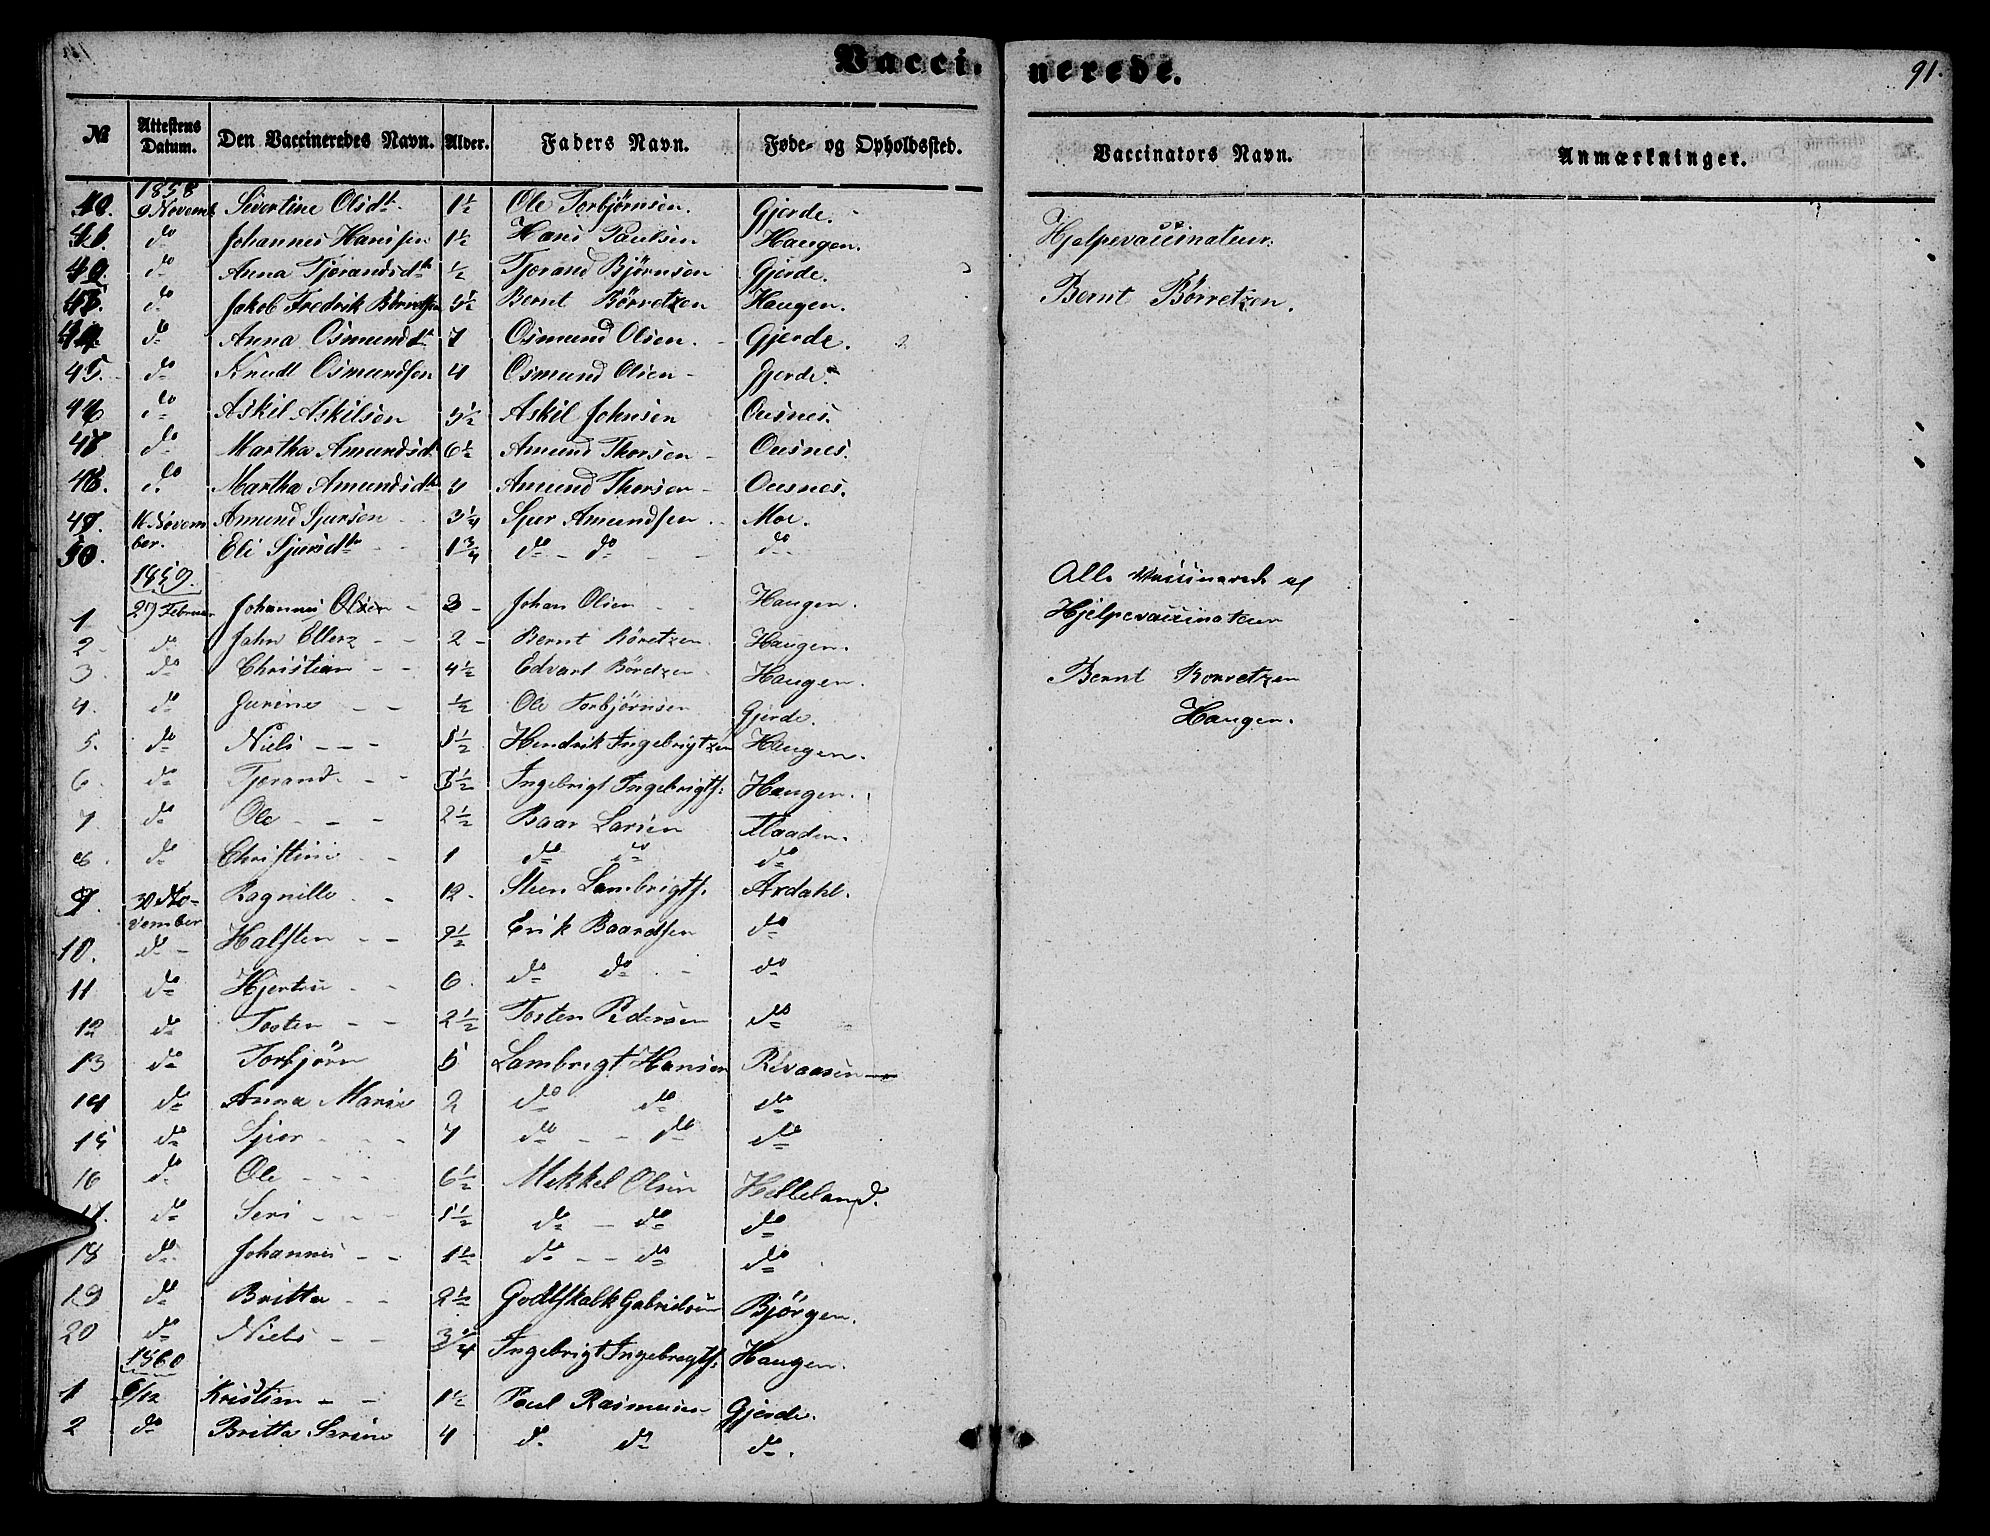 Vaccinerede.
91.
№ Attestens Datum. Den Vaccineredes Navn. Alder. Faders Navn. Føde- og Opholdssted. Vaccinators Navn. Anmærkninger.
1858
40. 9 Novemb Sivertine Olsdt. 1½ Ole Torbjørnsen. Gjerde.
41. do Johannes Hanssen 1½ Hans Paulsen Haugen. Hjelpevaccinateur
42. do Anna Tjorandsdtr ½ Tjorand Bjørnsen Gjerde.
43. do Jakob Fredrik 5½ Bernt Börretzen Haugen. Bernt Börretzen.
44. do Anna Osmundsdt 7 Osmund Olsen. Gjerde.
45. do Knudt Osmundsen 4 Osmund Olsen Gjerde.
46 do Askil Askilsen 5½ Askil Johnsen Ousnes.
47. do Martha Amundsd. 6½ Amund Thorsen Ousnes.
48. do Martha Amundsdtr Amund Thorsen Ousnes.
49. 16 Novem Amund Sjursen 3¼ Sjur Amundsen Moe.
50. ber. Eli Sjursdtr 1¾ do do do
1859.
1 27 Februar Johannes Olsen 3 Johan Olsen Haugen. Alle Vaccinerede af Hjelpevaccinateur
2 do John Ellerz 2 Bernt Böretzen Haugen.
3. do Christian 4½ Edvart Böretzen Haugen. Bernt Borretzen
4. do Jurine ½ Ole Torbjørnsen Gjerde. Haugen.
5. do Niels 5½ Hendrik Ingebrigtzen Haugen.
6. do Tjorand 3½ Ingebrigt Ingebrigts. Haugen.
7. do Ole 2½ Baar Larsen Flaaden.
8. do Christine 1 do do do
9. 30 No- Ragnille 12. Steen Lambrigts. Ardahl.
vember
10. do Halsten 9½ Erik Baardsen do
11 do Hjertru 6. do do do
12 do Tosten 2½ Tosten Pedersen do
13 do Torbjörn 5 Lambrigt Hansen Revaasen
14 do Anna Marie 2 do do do
15 do Sjur 7 do do do
16 do Ole 6½ Mikkel Olsen Helleland.
17. do Seri 5½ do do do
18 do Johannes 1½ do do do
19 do Britta 2½ Godtskalk Gabrielsen Bjørgen.
20 do Niels 3/4 Ingebrigt Ingebregts. Haugen.
1860
1 6/12 Kristian 1½ Poul Rasmusen Gjerde.
2 do Britta Serine 4 do do do.